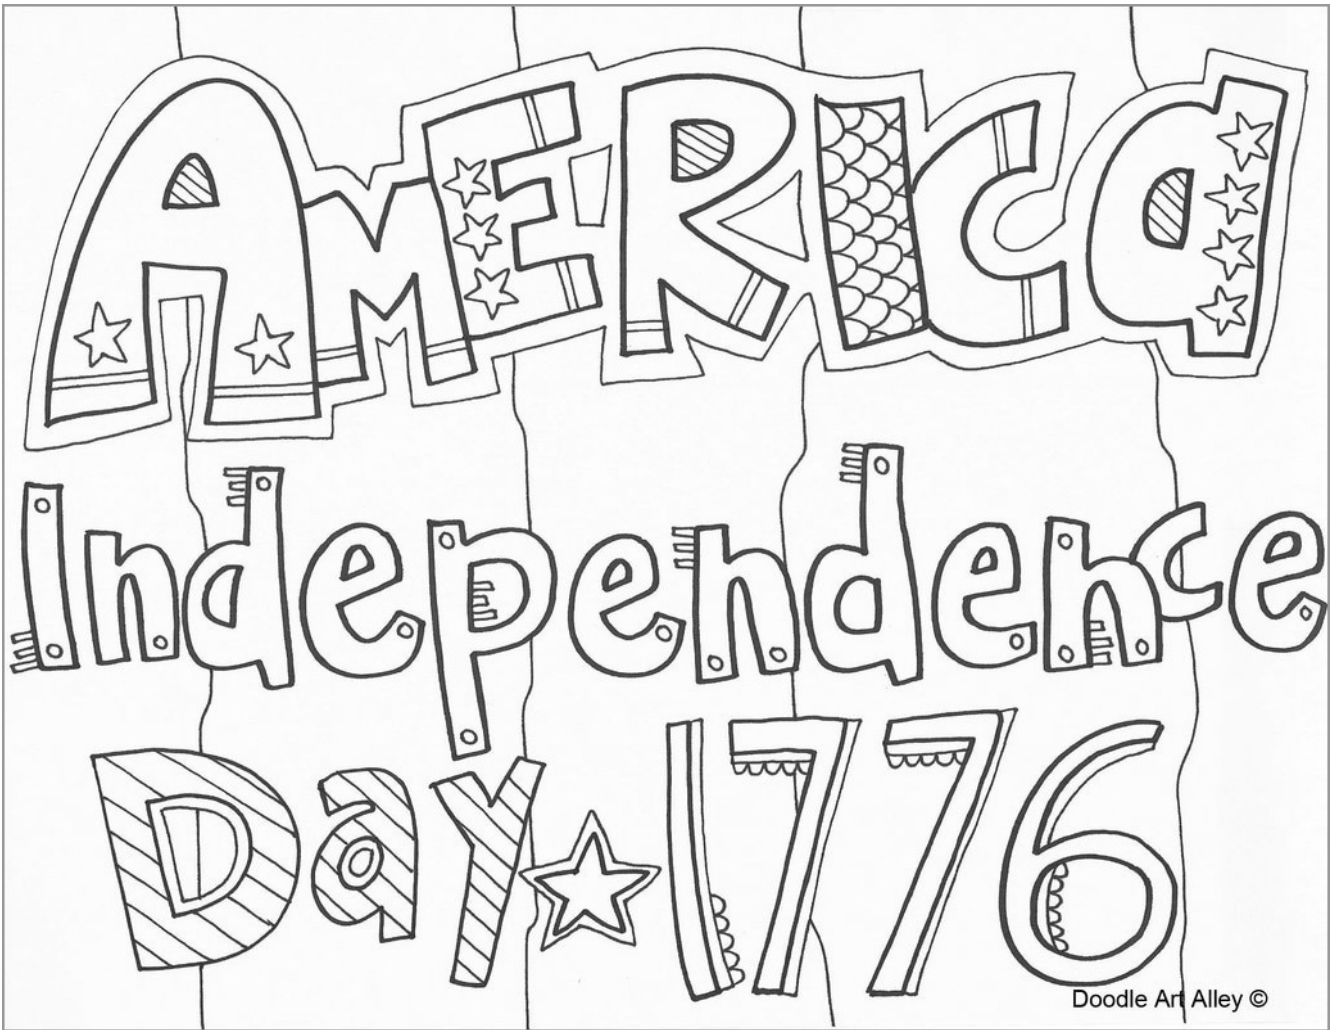 AMERICA
Independence
Day 1776
Doodle Art Alley ©